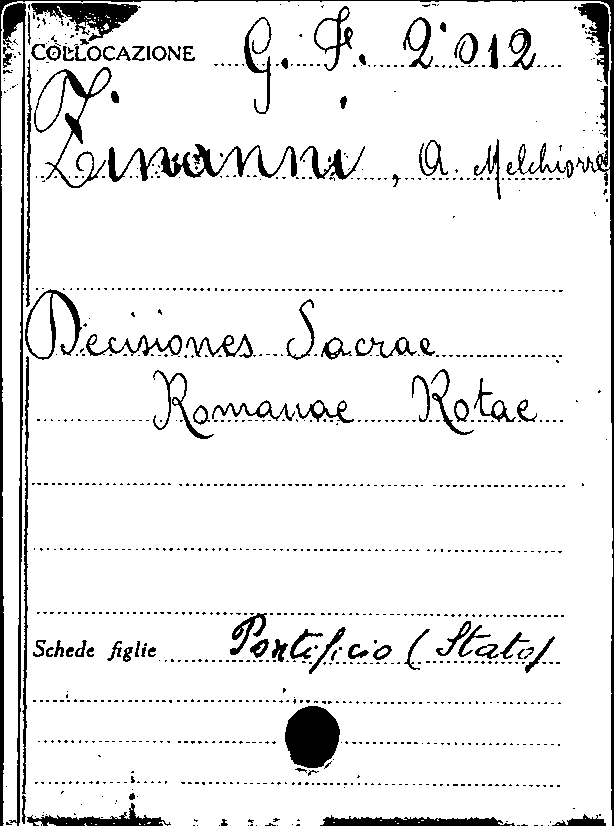 COLLOCAZIONE G. F. 2° 012
Zinanni, A. Melchiorre
Decisiones Sacrae
Romanae Rotae
Schede figlie Pontificio (Stato)